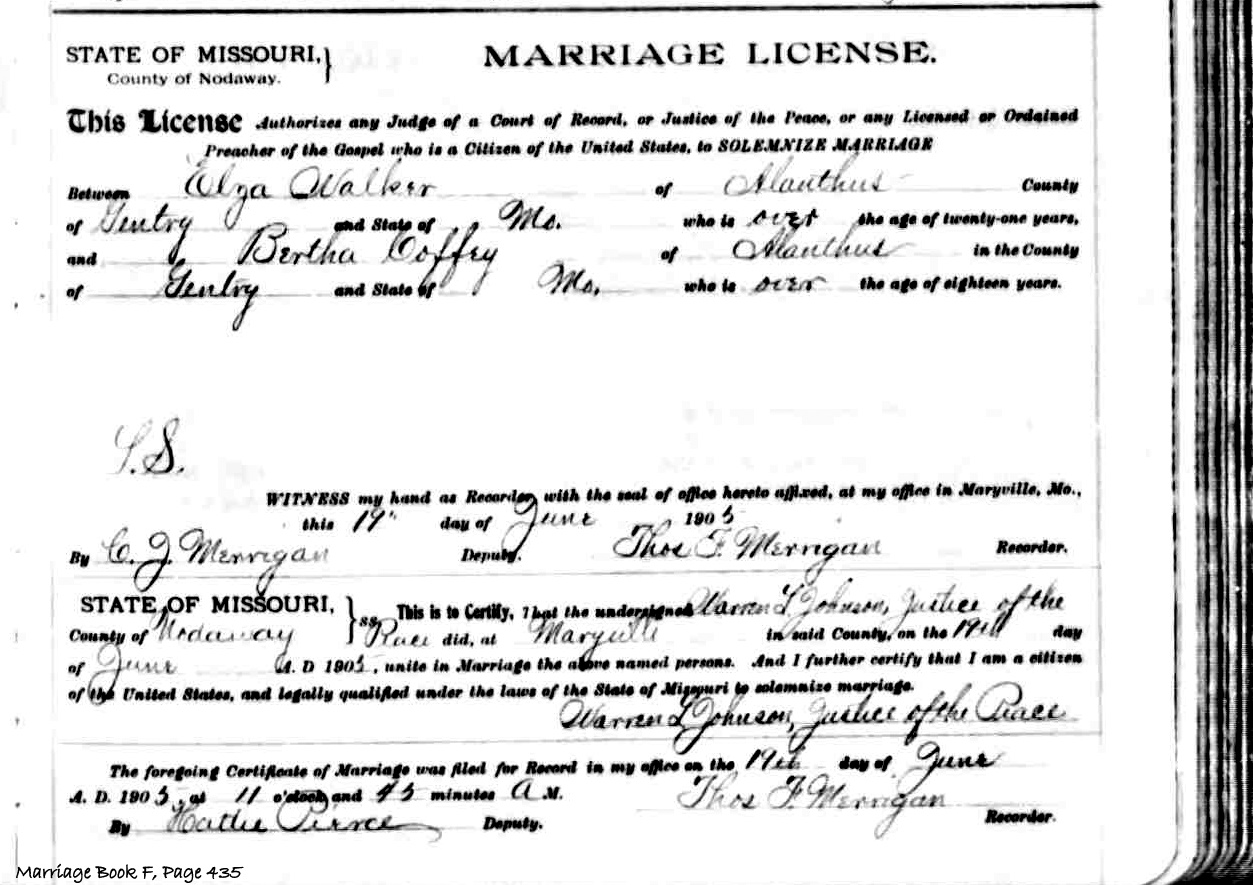 STATE OF MISSOURI, } MARRIAGE LICENSE.
County of Nodaway.
This License Authorizes any Judge of a Court of Record, or Justice of the Peace, or any Licensed or Ordained
Preacher of the Gospel who is a Citizen of the United States, to SOLEMNIZE MARRIAGE
Between Elza Walker of Alanthus County
of Gentry and State of Mo. who is over the age of twenty-one years,
and Bertha Coffey of Alanthus in the County
of Gentry and State of Mo. who is over the age of eighteen years.
L.S.
WITNESS my hand as Recorder with the seal of office hereto affixed, at my office in Maryville, Mo.,
this 19" day of June 1905
By C. J. Merrigan Deputy. Thos F. Merrigan Recorder.
STATE OF MISSOURI, } ss This is to Certify, That the undersigned Warren L Johnson, Justice of the
County of Nodaway Peace did, at Maryville in said County, on the 19th day
of June A. D 1905, unite in Marriage the above named persons. And I further certify that I am a citizen
of the United States, and legally qualified under the laws of the State of Missouri to solemnize marriage.
Warren L Johnson, Justice of the Peace
The foregoing Certificate of Marriage was filed for Record in my office on the 19th day of June
A. D. 1905, at 11 o'clock and 45 minutes A M. Thos F. Merrigan
By Hattie Pierce Deputy. Recorder.
Marriage Book F, Page 435